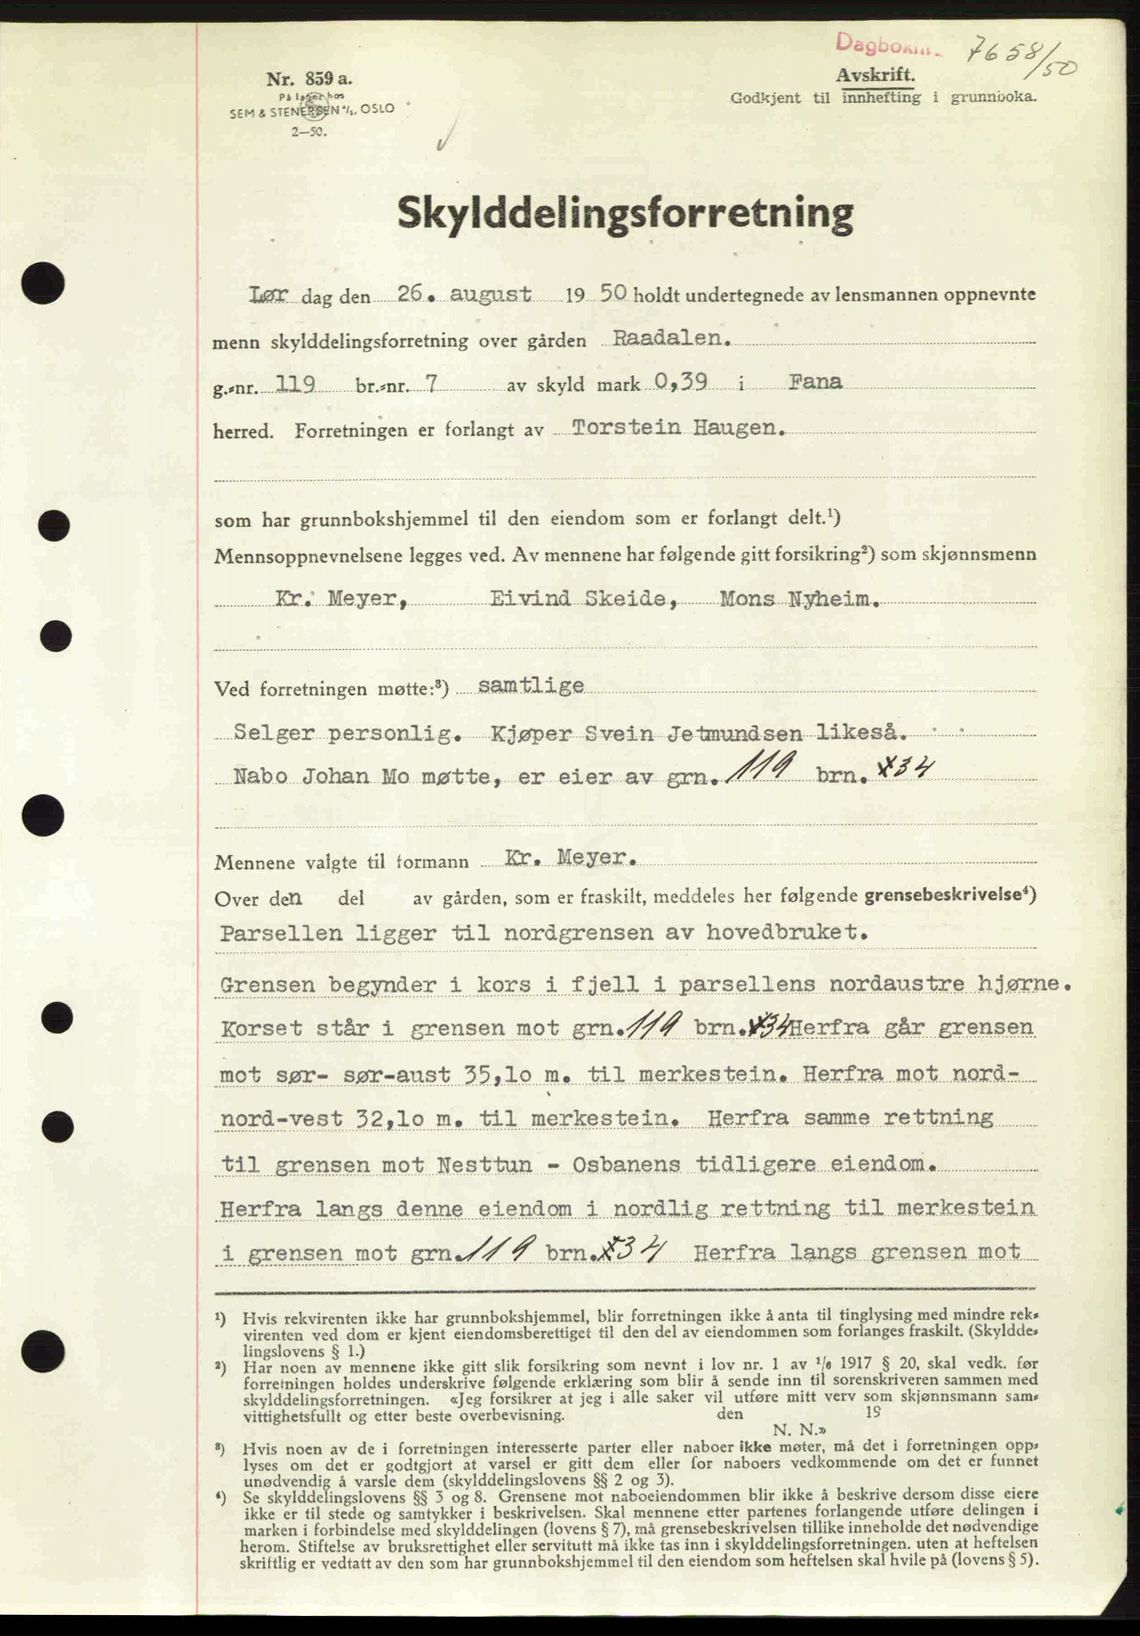 Dagboknr. 7658/50
Nr. 859 a.
På lager hos
SEM & STENERSEN A/S. OSLO
2—50.
Avskrift.
Godkjent til innhefting i grunnboka.
Skylddelingsforretning
Lør dag den 26. august 19 50 holdt undertegnede av lensmannen oppnevnte
menn skylddelingsforretning over gården Raadalen.
g.-nr. 119 br.-nr. 7 av skyld mark 0,39 i Fana
herred. Forretningen er forlangt av Torstein Haugen.
som har grunnbokshjemmel til den eiendom som er forlangt delt.¹)
Mennsoppnevnelsene legges ved. Av mennene har følgende gitt forsikring²) som skjønnsmenn
Kr. Meyer, Eivind Skeide, Mons Nyheim.
Ved forretningen møtte:³) samtlige
Selger personlig. Kjøper Svein Jetmundsen likeså.
Nabo Johan Mo møtte, er eier av grn. 119 brn. 34
Mennene valgte til formann Kr. Meyer.
Over den del av gården, som er fraskilt, meddeles her følgende grensebeskrivelse⁴)
Parsellen ligger til nordgrensen av hovedbruket.
Grensen begynder i kors i fjell i parsellens nordaustre hjørne.
Korset står i grensen mot grn. 119 brn. 34 Herfra går grensen
mot sør- sør-aust 35,10 m. til merkestein. Herfra mot nord-
nord-vest 32,10 m. til merkestein. Herfra samme rettning
til grensen mot Nesttun - Osbanens tidligere eiendom.
Herfra langs denne eiendom i nordlig rettning til merkestein
i grensen mot grn. 119 brn. 34 Herfra langs grensen mot
¹) Hvis rekvirenten ikke har grunnbokshjemmel, blir forretningen ikke å anta til tinglysing med mindre rek-
virenten ved dom er kjent eiendomsberettiget til den del av eiendommen som forlanges fraskilt. (Skyldde-
lingslovens § 1.)
²) Har noen av mennene ikke gitt slik forsikring som nevnt i lov nr. 1 av 1/6 1917 § 20, skal vedk. før
forretningen holdes underskrive følgende erklæring som blir å sende inn til sorenskriveren sammen med
skylddelingsforretningen. «Jeg forsikrer at jeg i alle saker vil utføre mitt verv som skjønnsmann sam-
vittighetsfullt og etter beste overbevisning. den 19
N. N.»
³) Hvis noen av de i forretningen interesserte parter eller naboer ikke møter, må det i forretningen opp-
lyses om det er godtgjort at varsel er gitt dem eller for naboers vedkommende om det er funnet
unødvendig å varsle dem (skylddelingslovens §§ 2 og 3).
⁴) Se skylddelingslovens §§ 3 og 8. Grensene mot naboeiendommen blir ikke å beskrive dersom disse eiere
ikke er til stede og samtykker i beskrivelsen. Skal mennene etter partenes forlangende utføre delingen i
marken i forbindelse med skylddelingen (lovens § 7), må grensebeskrivelsen tillike inneholde det nødvendige
herom. Stiftelse av bruksrettighet eller servitutt må ikke tas inn i skylddelingsforretningen. uten at heftelsen
skriftlig er vedtatt av den som har grunnbokshjemmel til den eiendom som heftelsen skal hvile på (lovens § 5).